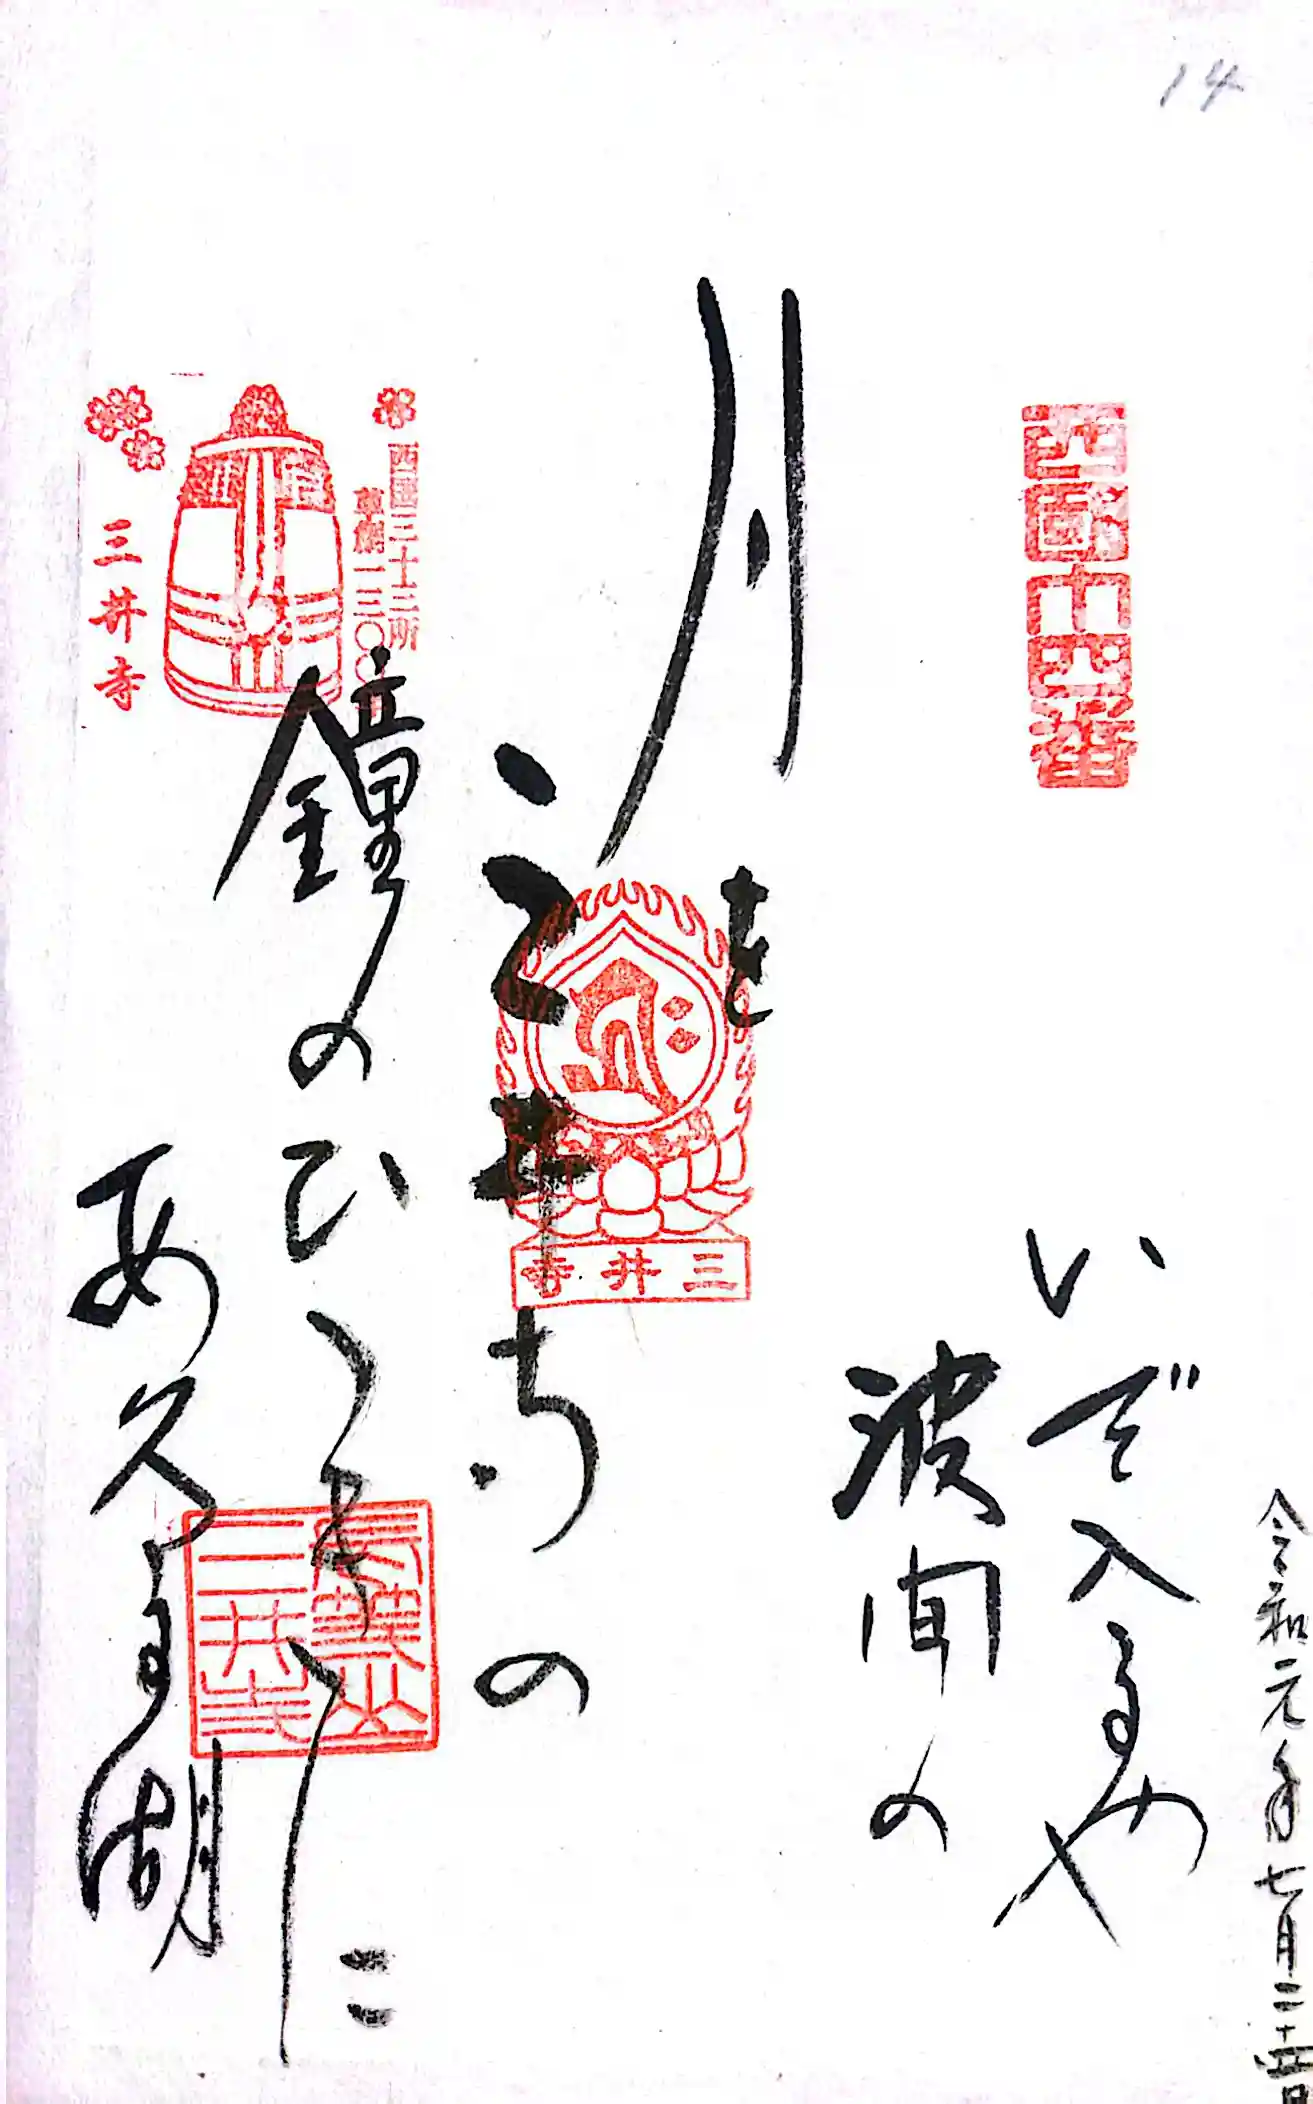 14
西國十四番
令和元年七月二十
いで入るや
波間の
月を
三井寺の
三井寺
西國三十三所
草創一三〇〇
三井寺
鐘のひゞきに
あ久る湖
長等山
三井寺